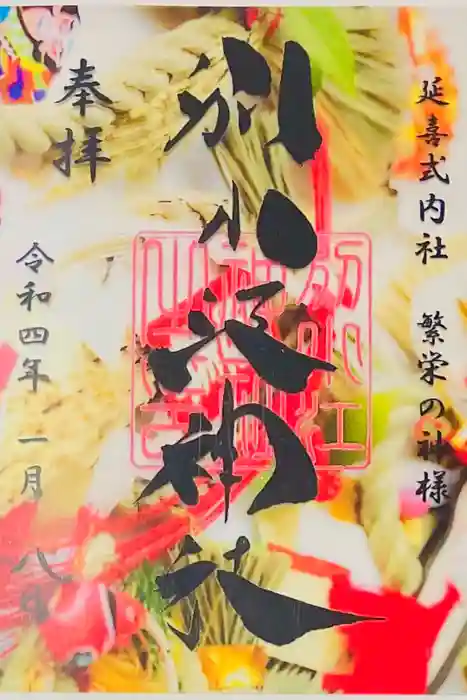 延喜式内社 繁栄の神様
別小江神社
別小江
神社
之印
奉拝
令和四年 一月 八日